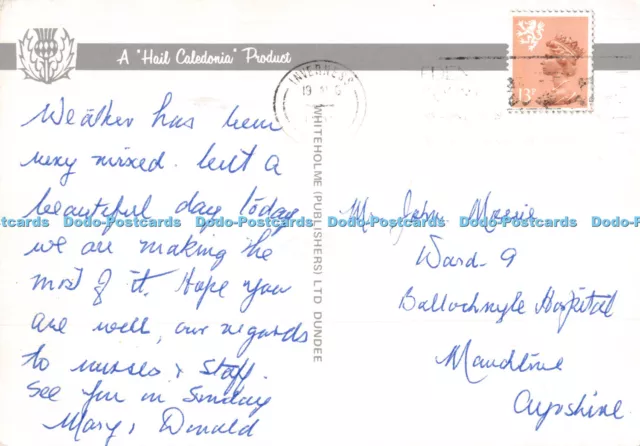 A "Hail Caledonia" Product
INVERNESS
19
EDEN
13P
WHITEHOLME (PUBLISHERS) LTD DUNDEE
Weather has been
very mixed. but a
beautiful day today
we are making the
most of it. Hope you
are well, our regards
to nurses & staff.
See you on Sunday
Mary & Donald
Mr John
Ward 9
Ballochmyle Hospital
Mauchline
Ayrshire
Dodo-Postcards Dodo-Postcards Dodo-Postcards Dodo-Postcards Dodo-Postcards
Dodo-Postcards Dodo-Postcards Dodo-Postcards Dodo-Postcards Dodo-Postcards